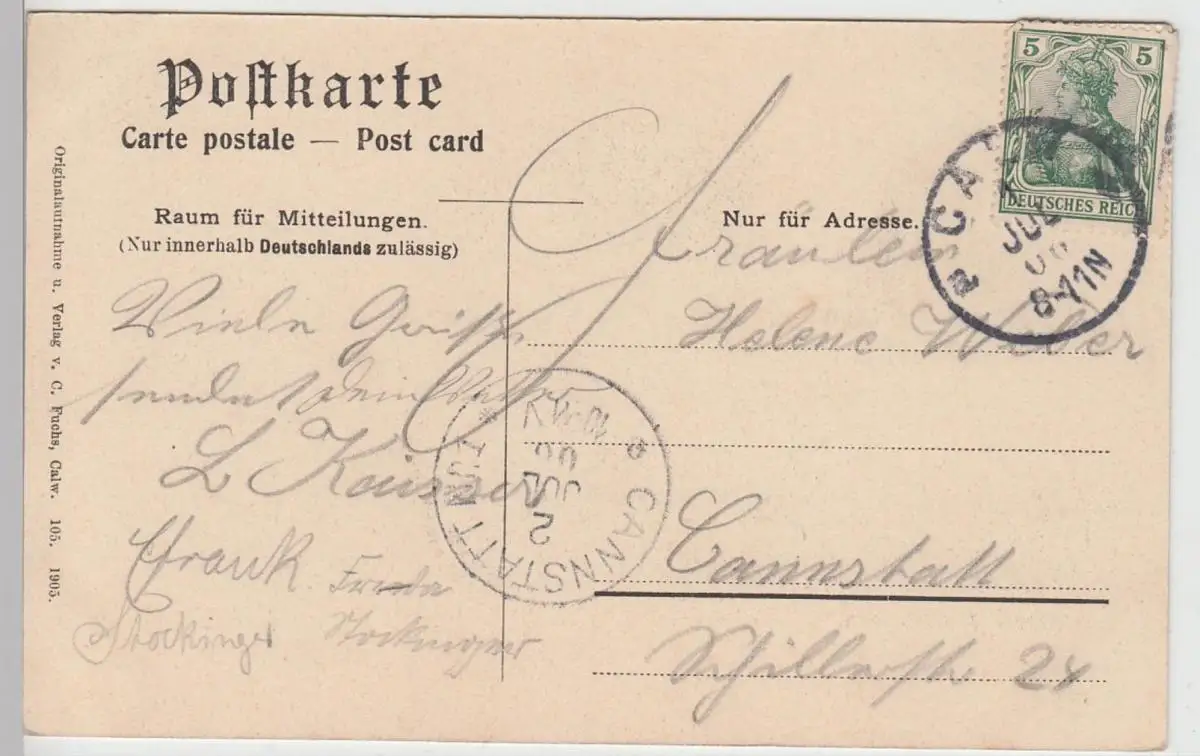 Postkarte
Carte postale — Post card
Raum für Mitteilungen.
(Nur innerhalb Deutschlands zulässig)
Nur für Adresse.
5 5
DEUTSCHES REICH
CA
JUL
06
8-11N
Viele Grüße
sendet
L Kaisser
Frank Frieda
Stockinger Stockinger
Fräulein
Helene Weber
Cannstatt
Schillerstr 24
CANNSTATT
2
JUL
06
Originalaufnahme u. Verlag v. C. Fuchs, Calw. 105. 1905.